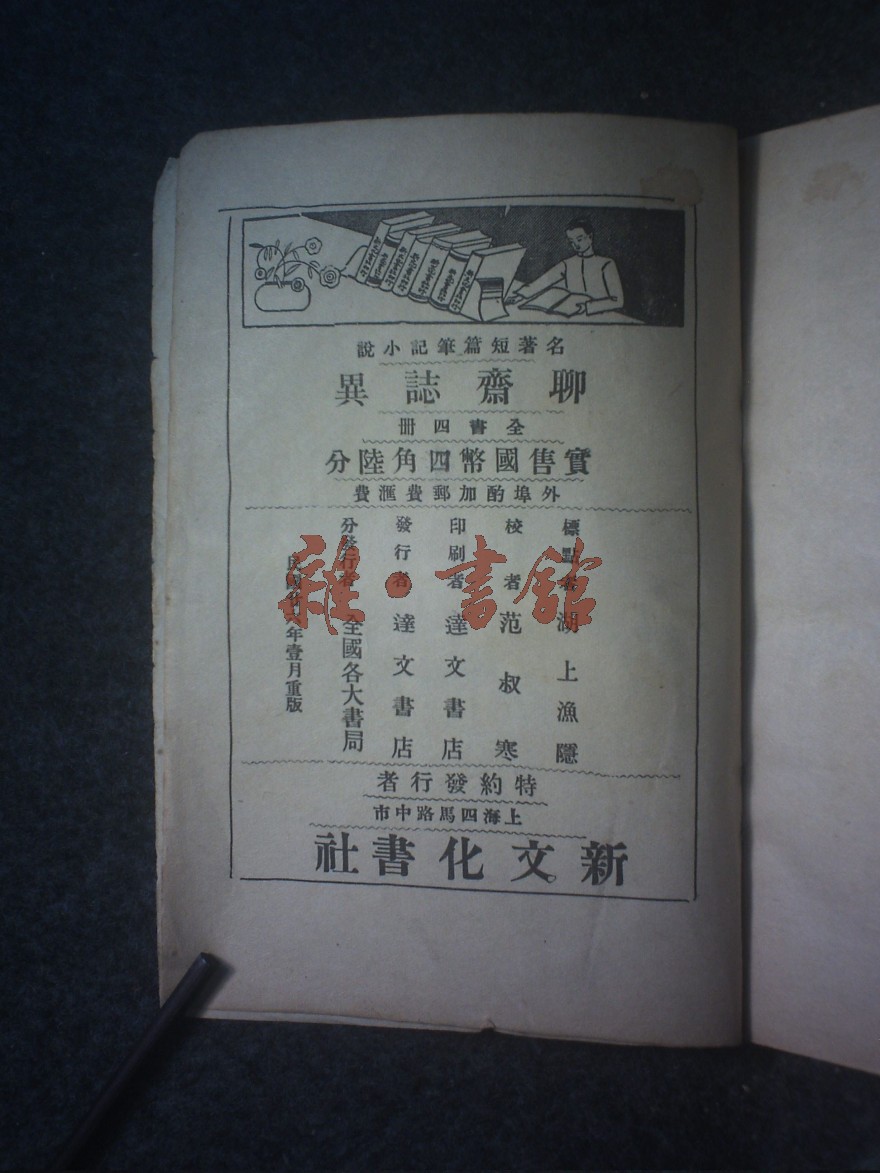 名著短篇筆記小說
聊齋誌異
全書四冊
實售國幣四角陸分
外埠酌加郵費滙費
標點者 湖上漁隱
校者 范叔寒
印刷者 達文書店
發行者 達文書店
分發行者 全國各大書局
民國廿六年壹月重版
特約發行者
上海四馬路中市
新文化書社
雜·書館